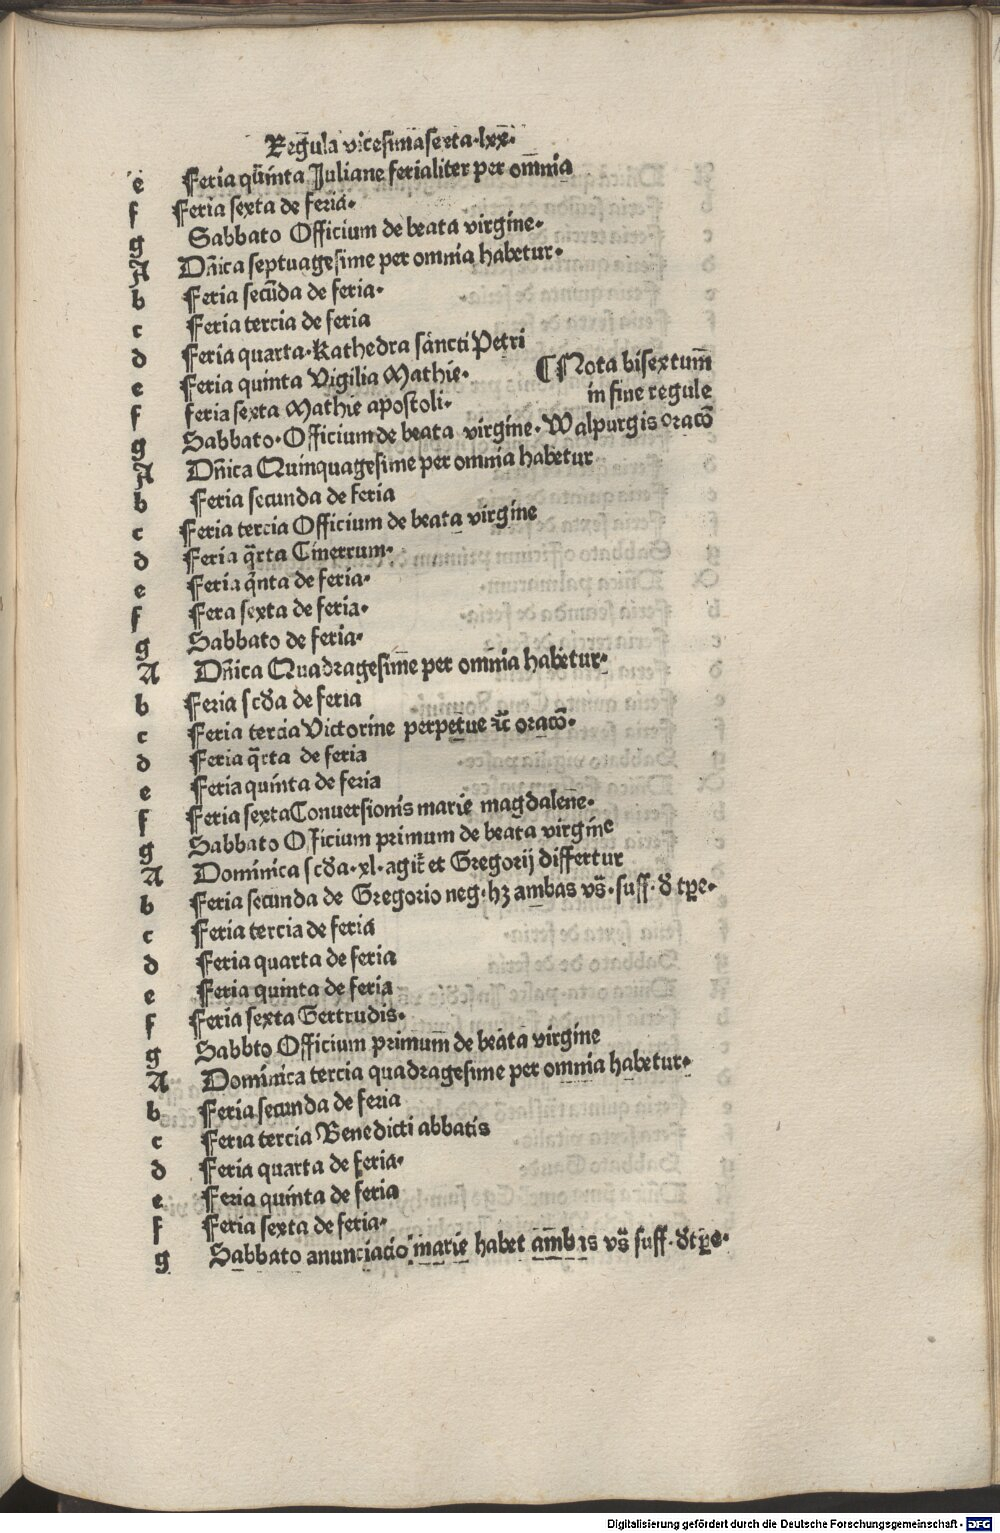 Regula vicesimasexta·lxx·
e Feria qui̅nta Juliane ferialiter per om̅nia
f Feria sexta de feria·
g Sabbato Officium de beata virgine·
A Dn̅ica septuagesime per omnia habetur·
b Feria secu̅nda de feria·
c Feria tercia de feria
d Feria quarta·Kathedra sancti Petri
e Feria quinta Vigilia Mathie· ¶Nota bisextum̅
f feria sexta Mathie apostoli· in fine regule
g Sabbato·Officium de beata virgine·Walpurgis oraco̅
A Dn̅ica Quinquagesime per omnia habetur
b Feria secunda de feria
c Feria tercia Officium de beata virgine
d Feria q̅rta Cinerrum·
e Feria q̅nta de feria·
f Fera sexta de feria·
g Sabbato de feria·
A Dn̅ica Quadragesim̅e per omnia habetur·
b Feria scd̅a de feria
c Feria tercia Victorine perpetue ꝛc̅ oraco̅·
d Feria q̅rta de feria
e Feria quinta de feria
f Feria sextaConversionis marie magdalene·
g Sabbato Officium primum de beata virgine
A Dominica scd̅a·xl·agit̅ et Gregorij differtur
b Feria secunda de Gregorio neg·hꝫ ambas vs̅·suff·d̅ tp̅e·
c Feria tercia de feria
d Feria quarta de feria
e Feria quinta de feria
f Feria sexta Gertrudis·
g Sabbto Officium primum̅ de beata virgine
A Dominica tercia quadragesime per omnia habetur·
b Feria secunda de feria
c Feria tercia Benedicti abbatis
d Feria quarta de feria·
e Feria quinta de feria
f Feria sexta de feria·
g Sabbato anunciacio marie habet amb is vs̅ suff·d̅tp̅e·
Digitalisierung gefördert durch die Deutsche Forschungsgemeinschaft - DFG